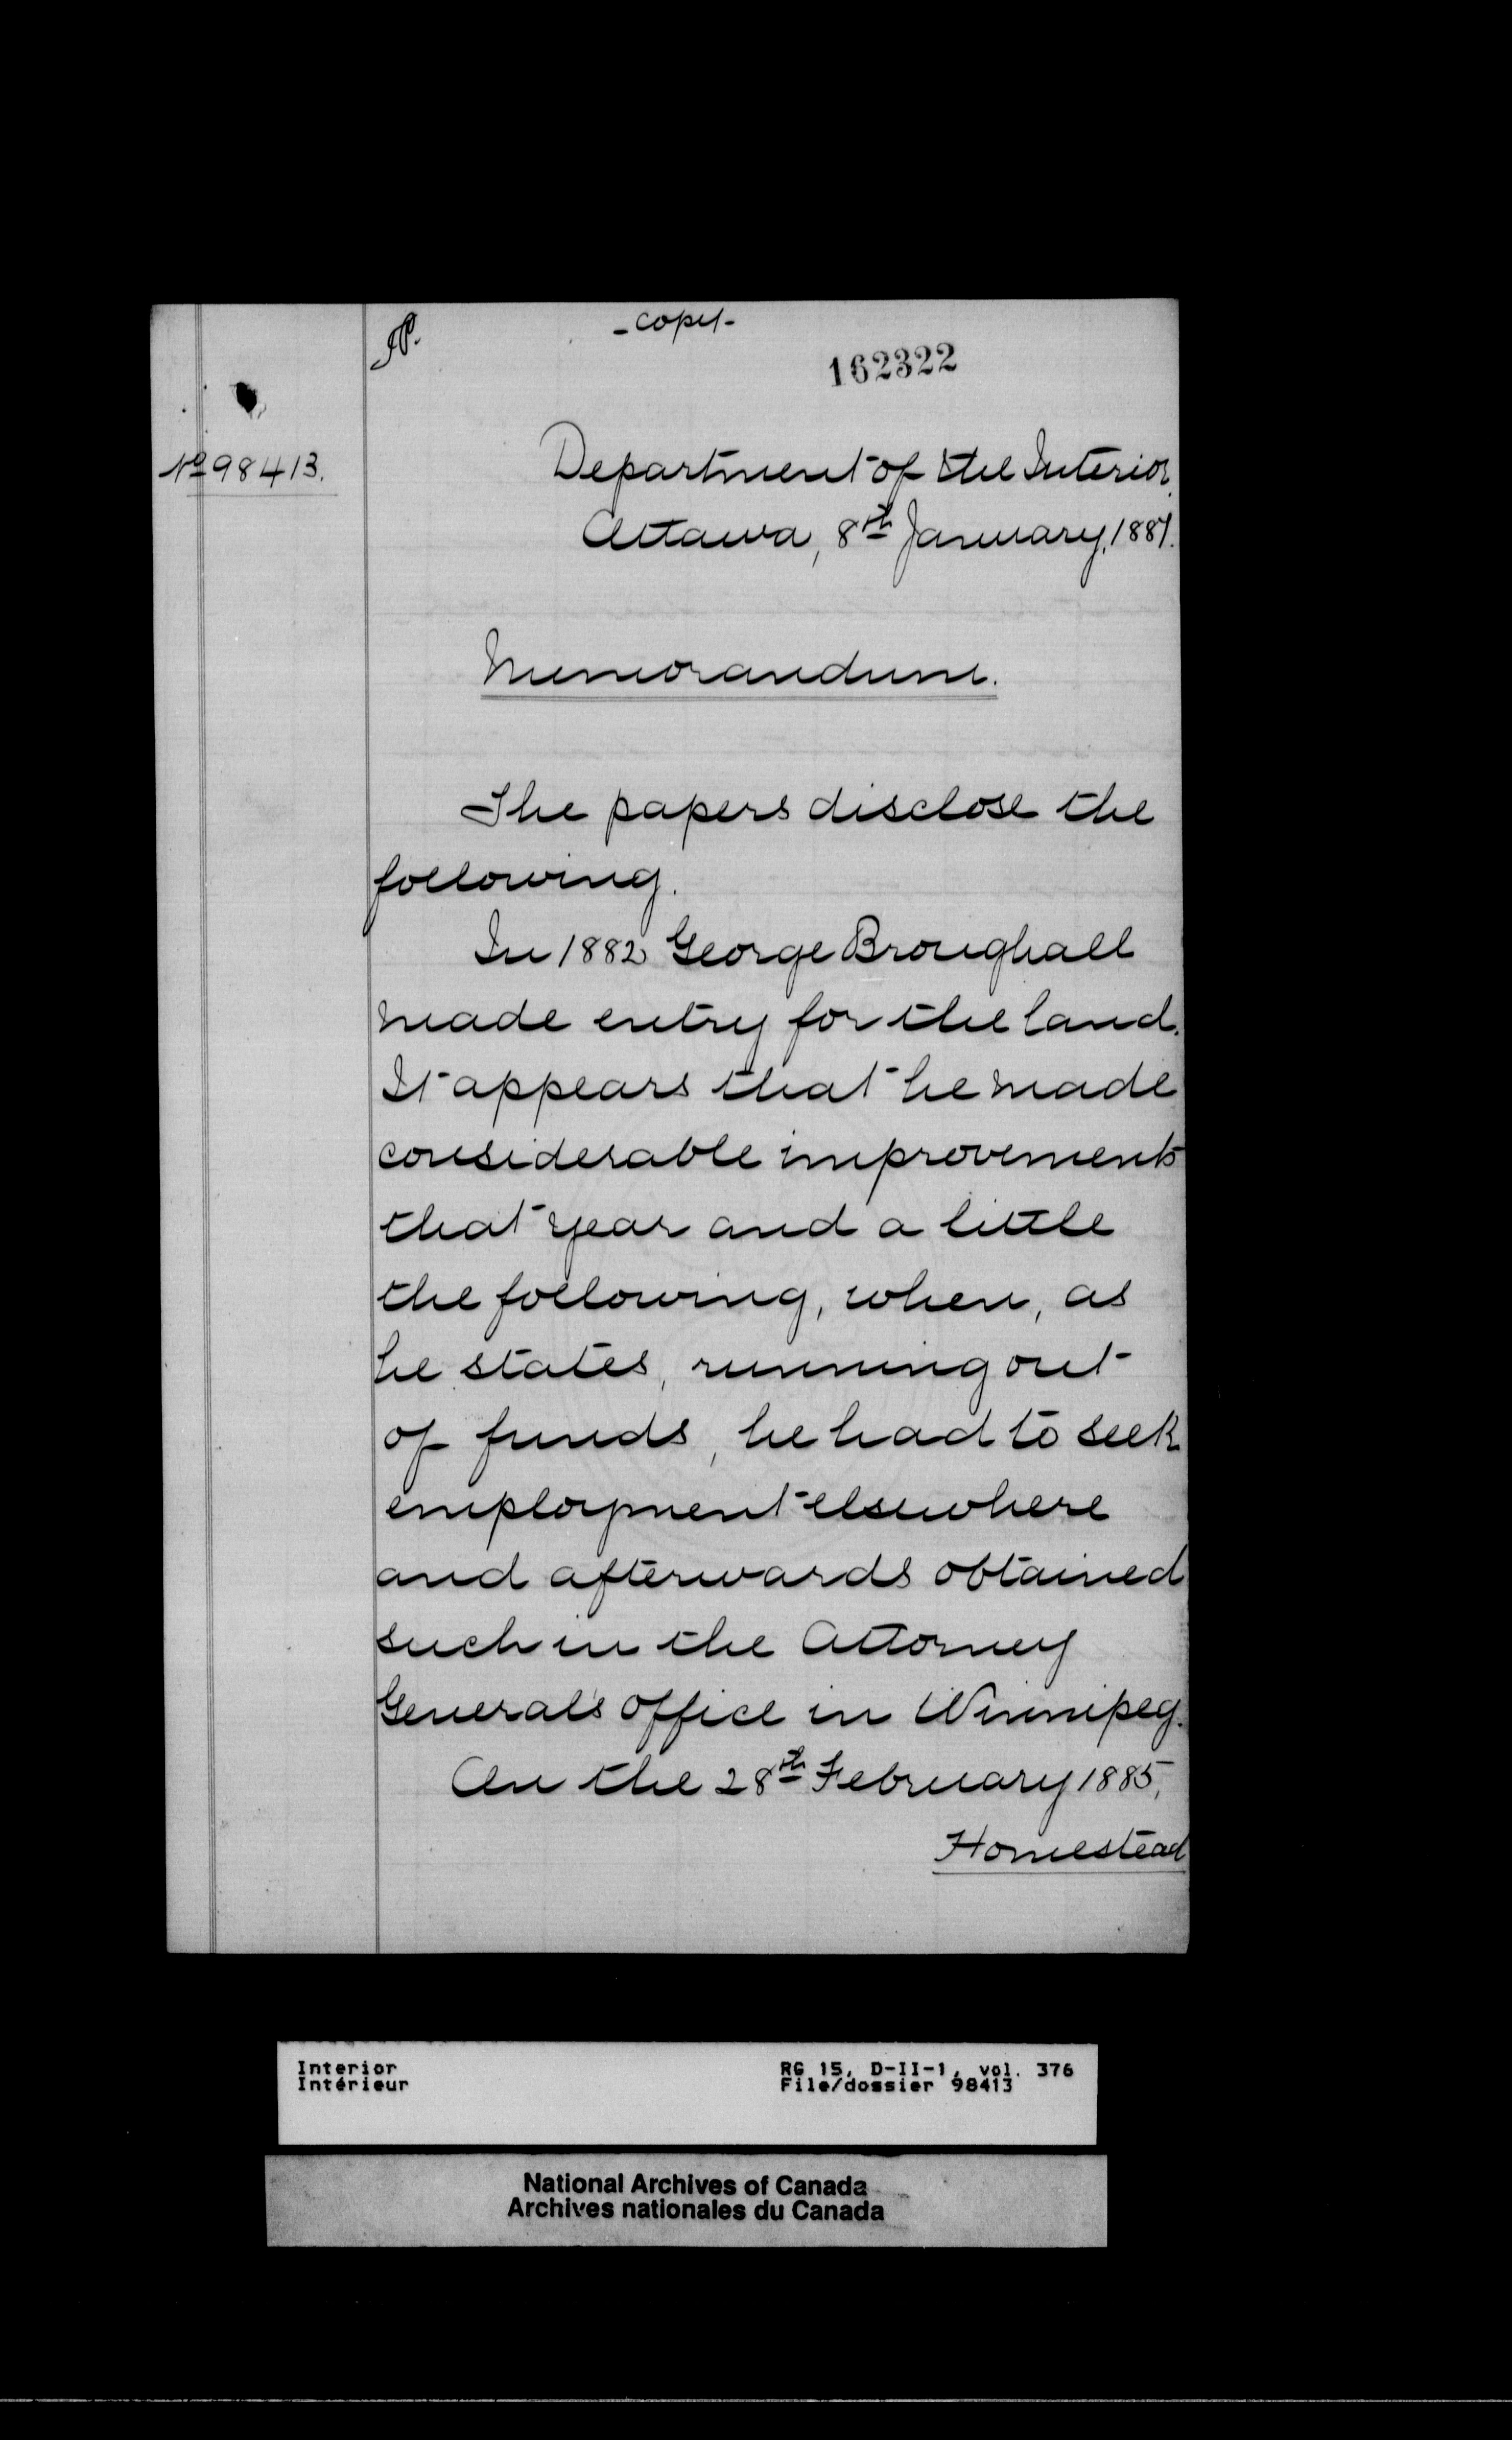 -copy-
162322
No 98413.
Department of the Interior,
Ottawa, 8th January, 1887.
Memorandum.
The papers disclose the
following.
In 1882 George Broughall
made entry for the land.
It appears that he made
considerable improvements
that year and a little
the following, when, as
he states, running out
of funds, he had to seek
employment elsewhere
and afterwards obtained
such in the Attorney
General's office in Winnipeg.
On the 28th February 1885,
Homestead
Interior
Intérieur
RG 15, D-II-1, vol. 376
File/dossier 98413
National Archives of Canada
Archives nationales du Canada